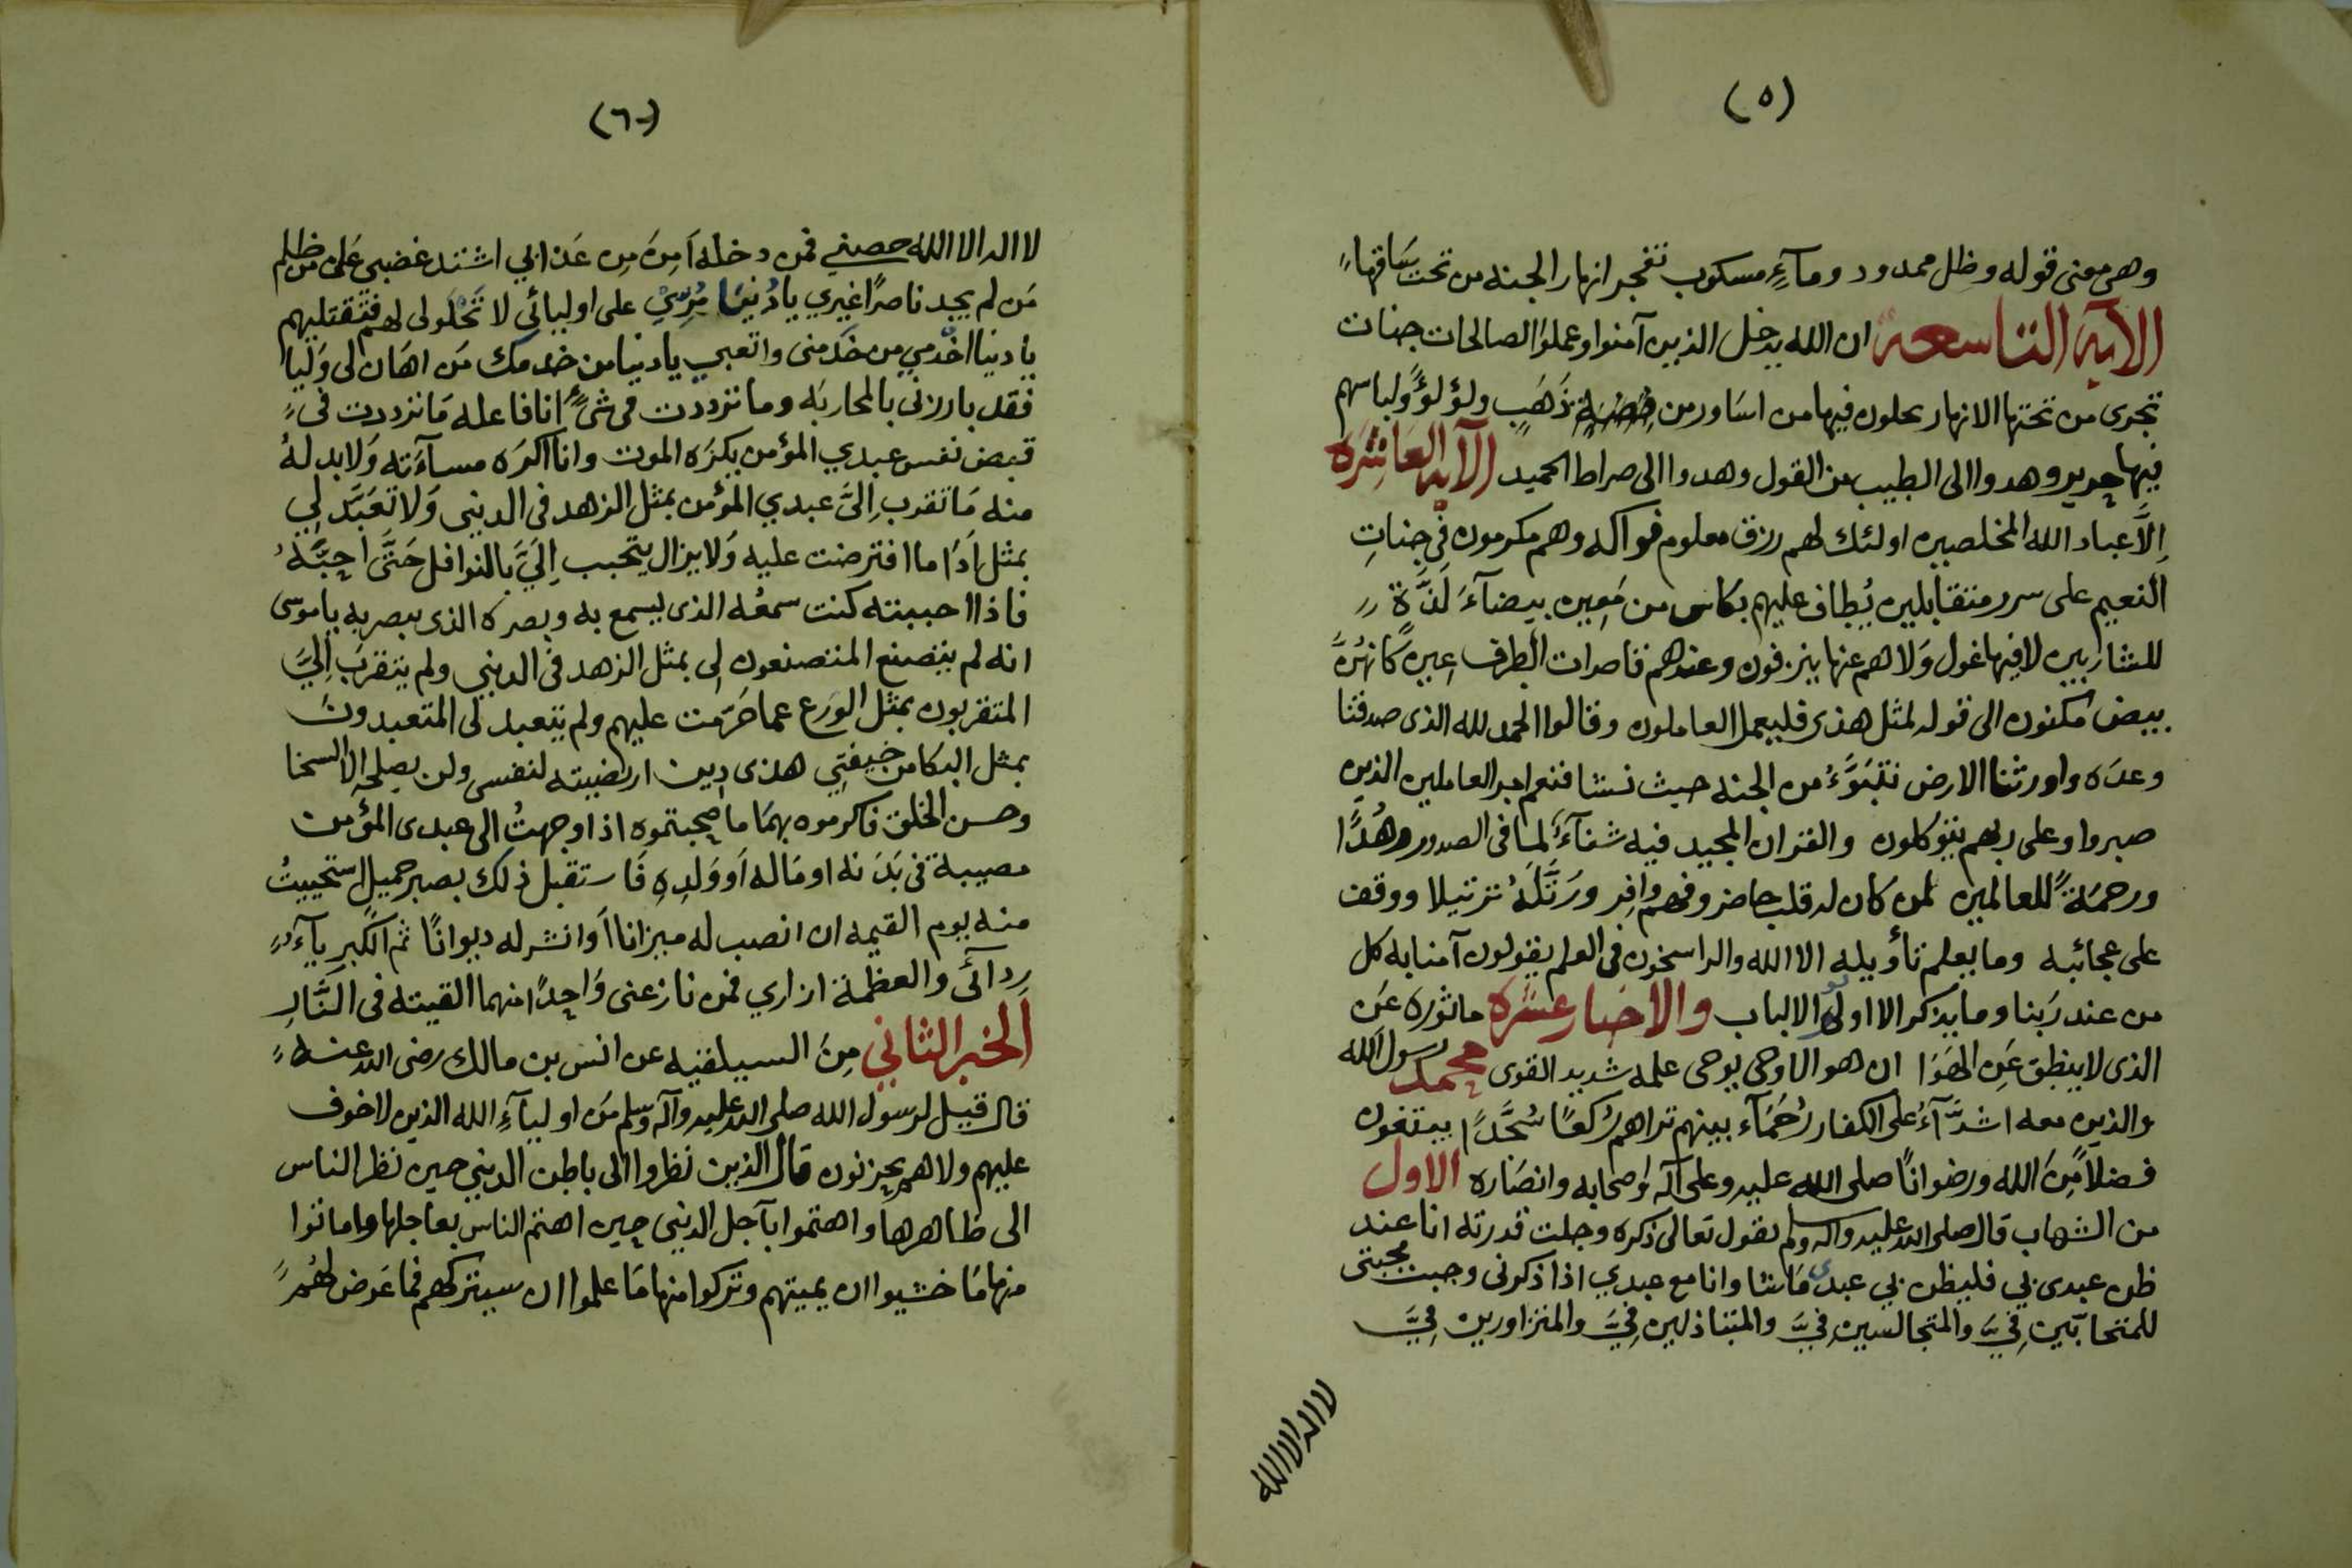 (٥)
وهي معنى قوله وظل ممدود ومآءٍ مسكوب تفجر انهار الجنه من تحت ساقهاء
الآيه التاسعة ان الله يدخل الذين آمنوا وعملوا الصالحات جنات
تجرى من تحتها الانهار يحلون فيها من اساور من ذَهَبٍ ولؤلؤً ولباسهم
فيها حرير وهدوا الى الطيب من القول وهدوا الى صراط الحميد الآيه العاشره
اِلَّا عباد الله المخلصين اولئك لهم رزق معلوم فواكه وهم مكرمون في جناتِ
النعيم على سرر متقابلين يُطاف عليهم بكاس من مَعِين بيضآءَ لَذَّةٍ
للشاربين لا فيها غول وَلا هم عنها ينزفون وعندهم قاصرات الطرف عِين كَانهُنَّ
بيض مكنون الى قوله لمثل هذى فليعمل العاملون وقالوا الحمد لله الذى صدقنا
وعدَه واورثنا الارض نتبَوَّءُ من الجنه حيث نشا فنعم اجر العاملين الذين
صبروا وعلى ربهم يتوكلون والقران المجيد فيه شفآءٌ لما فى الصدور وهُدًا
ورحمَةً للعالمين لمن كان له قلب حاضر وفهم وافِر ورَتَّلَهُ ترتيلا ووقف
على عجائبه وما يعلم تأويله الا الله والراسخون فى العلم يقولون آمنا به كل
من عند رَبنا وما يذكر الا اولو الالباب والاخبار عشره ماثوره عَن
الذى لا ينطق عَنِ الهَوَا ان هو الا وحى يوحى علمه شديد القوى محمد رسول الله
والذين معه اشدَّآءُ على الكفار رُحَمَآء بينهم تراهم رُكعًا سُجَّدًا يبتغون
فضلاً مِّنَ الله ورضوانًا صلى الله عليه وعلى آله وَصحابه وانصَاره الاول
من الشهاب قال صلى الله عليه واله وسلم يقول تعالى ذكره وجلت قدرته انا عند
ظن عبدى بي فليظن بي عبدى مَا شا وانا مع عبدي اذا ذكرنى وجبت محبتى
للمتحابّين فِيَّ والمتجالسين فِيَّ والمتباذلين فِيَّ والمتزاورين فِيَّ
لا اله الا الله
(٦)
لا اله الا الله حصنى فمن دخله اَمِنَ مِن عَذابي اشتد غضبى عَلى من ظلم
مَن لم يجد ناصرًا غيري يا دُنيَا مُرِّيْ على اوليائي لا تَحْلَولى لهم فتقتليهم
يا دنيا اخدمي من خَدَمنى واتعبي يا دنيا من خدمك مَن اهَان لى وَليا
فقد بارزنى بالمحاربَه وما ترددت فى شىءٍ انا فاعله مَا ترددت فىءِ
قبض نفس عبدي المؤمن يكرَه الموت وانا اكرَه مسآءَته وَلا بد لهُ
منه مَا تقرب اِلىَّ عبدي المؤمن بمثل الزهد فى الدينى وَلا تعَبَّد لِي
بمثل اَدَا ما افترضت عليه وَلا يزال يتحبب اِلَيَّ بالنوافل حَتَّى اُحِبَّهُ
فاذا احببته كنت سمعُه الذى يسمع به وبصره الذى يبصر به يا موسى
انه لم يتصنع المتصنعون لِى بمثل الزهد فى الدينى ولم يتقرب اِلَيَّ
المتقربون بمثل الوَرَع عما حَرَّمت عليهم ولم يتعبد لى المتعبدونَ
بمثل البكا من خيفتِي هذى دين ارتضيته لنفسى ولن يصلحه الا السخا
وحسن الخلق فاكرموه بهمَا ما صحبتموه اذا وجهتُ الى عبدى المؤمن
مصيبة فى بَدَنه او مَاله اَو وَلدِهِ فَاستقبل ذلك بصبر جميل استحييتُ
منه يوم القيمه ان انصب له ميزانا اَو انشر له ديوانًا ثم الكِبرِيآءُ
رِدآئَى والعظمة ازاري فمن نازعنى وَاحِدًا منهما القيته فى النَّارِ
الخبر الثاني مِنَ السيلقيه عن انس بن مالك رضى الله عنه
قال قيل لرسول الله صلى الله عليه وآله وسلم مَن اوليآءِ الله الذين لا خوف
عليهم ولا هم يحزنون قال الذين نظروا الى باطن الدينى حين نظر الناس
الى ظاهرها واهتموا بآجل الدينى حين اهتم الناس بعاجلها واماتوا
منها مَا خشيوا ان يميتهم وتركوا منها مَا علموا ان سيتركهم فما عَرض لهُم